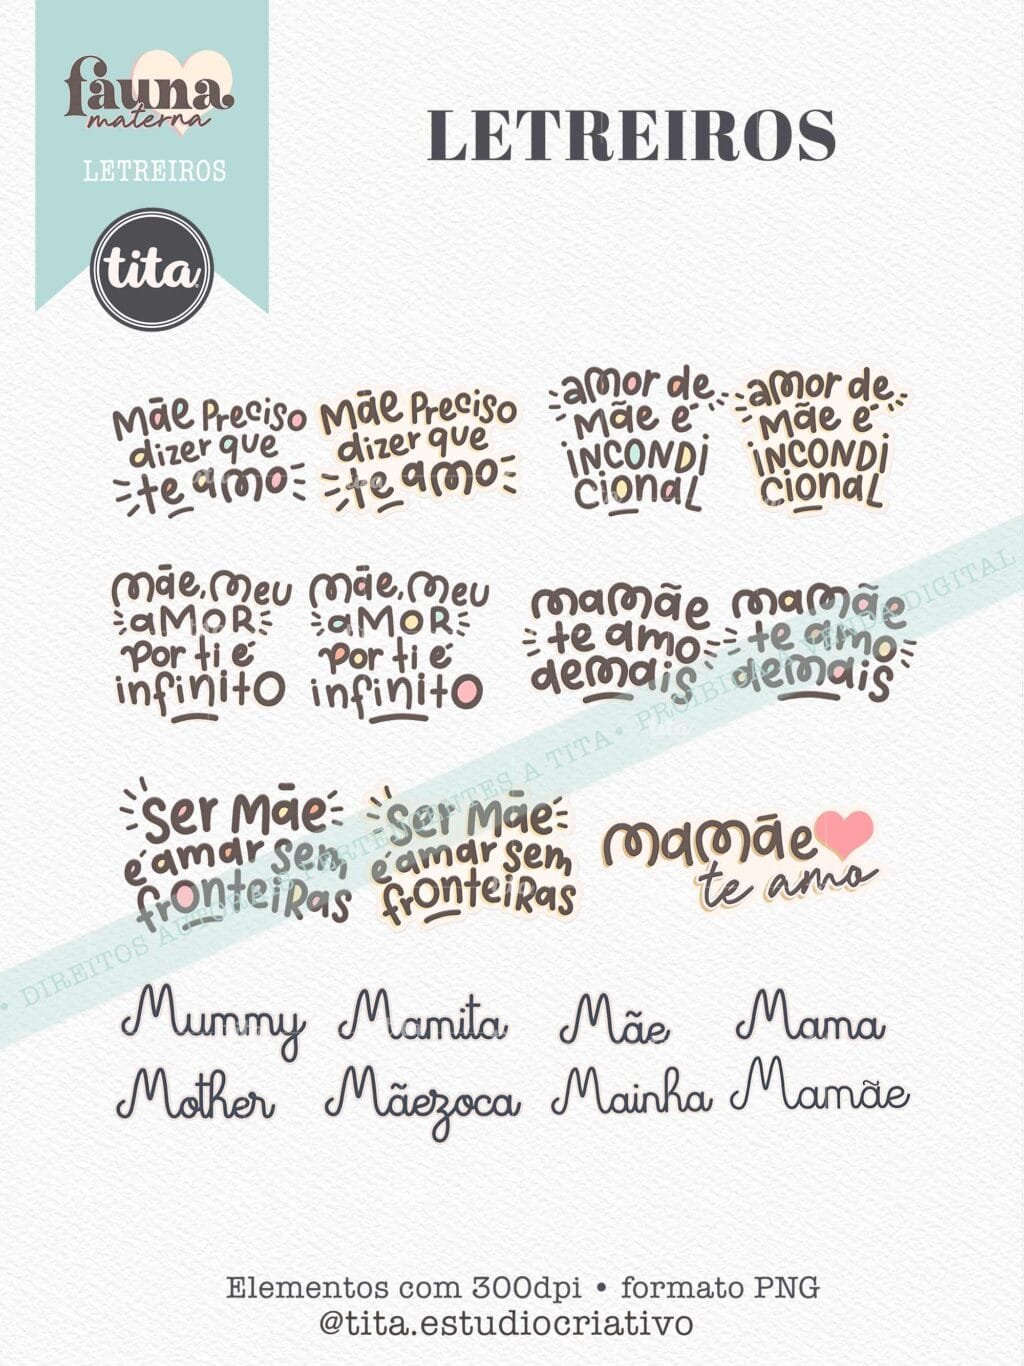 fauna
materna
LETREIROS
tita
LETREIROS
Mãe Preciso
dizer que
te amo
Mãe Preciso
dizer que
te amo
amor de
Mãe é
INCONDI
cional
amor de
Mãe é
INCONDI
cional
Mãe, Meu
aMOR
Por ti é
infinito
Mãe, Meu
aMOR
Por ti é
infinito
mamãe
te amo
demais
mamãe
te amo
demais
Ser Mãe
é amar sem
fronteiras
Ser Mãe
é amar sem
fronteiras
mamãe
te amo
• DIREITOS AUTORAIS PERTENCENTES A TITA • PROIBIDA A VENDA DIGITAL
Mummy Mamita Mãe Mama
Mother Mãezoca Mainha Mamãe
Elementos com 300dpi • formato PNG
@tita.estudiocriativo